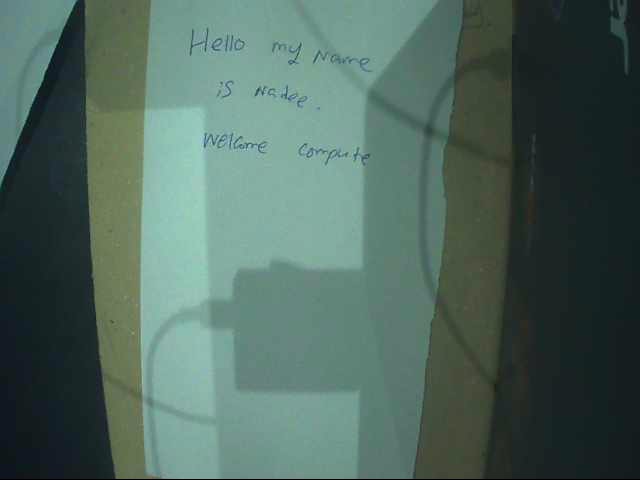 Hello my Name
is Nadee.
Welcome compute